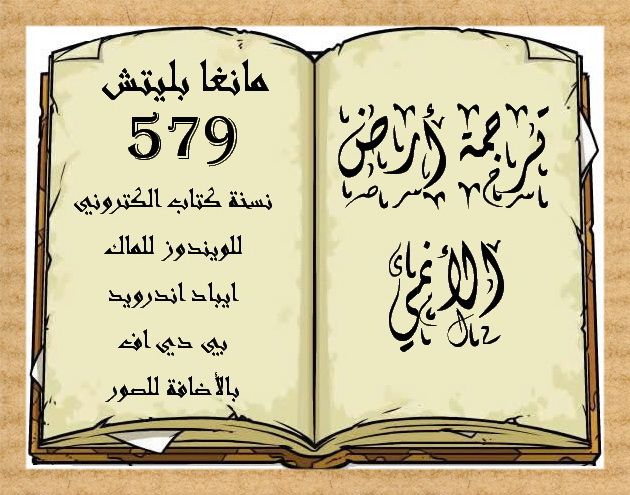 ترجمة أرض
الأنمي
مانغا بليتش
579
نسخة كتاب الكتروني
للويندوز للماك
ايباد اندرويد
بي دي اف
بالأضافة للصور